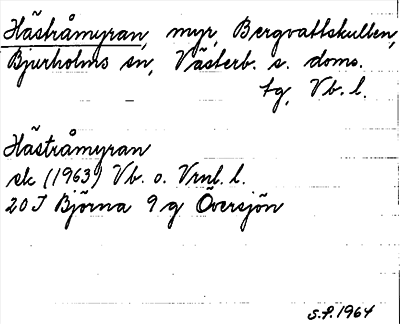 Hästråmyran, myr, Bergvattskullen,
Bjurholms sn, Västerb. s. doms.
tg, Vb. l.
Hästråmyran
sk (1963) Vb. o. Vrnl. l.
20 J Björna 9 g Översjön
S.P. 1964